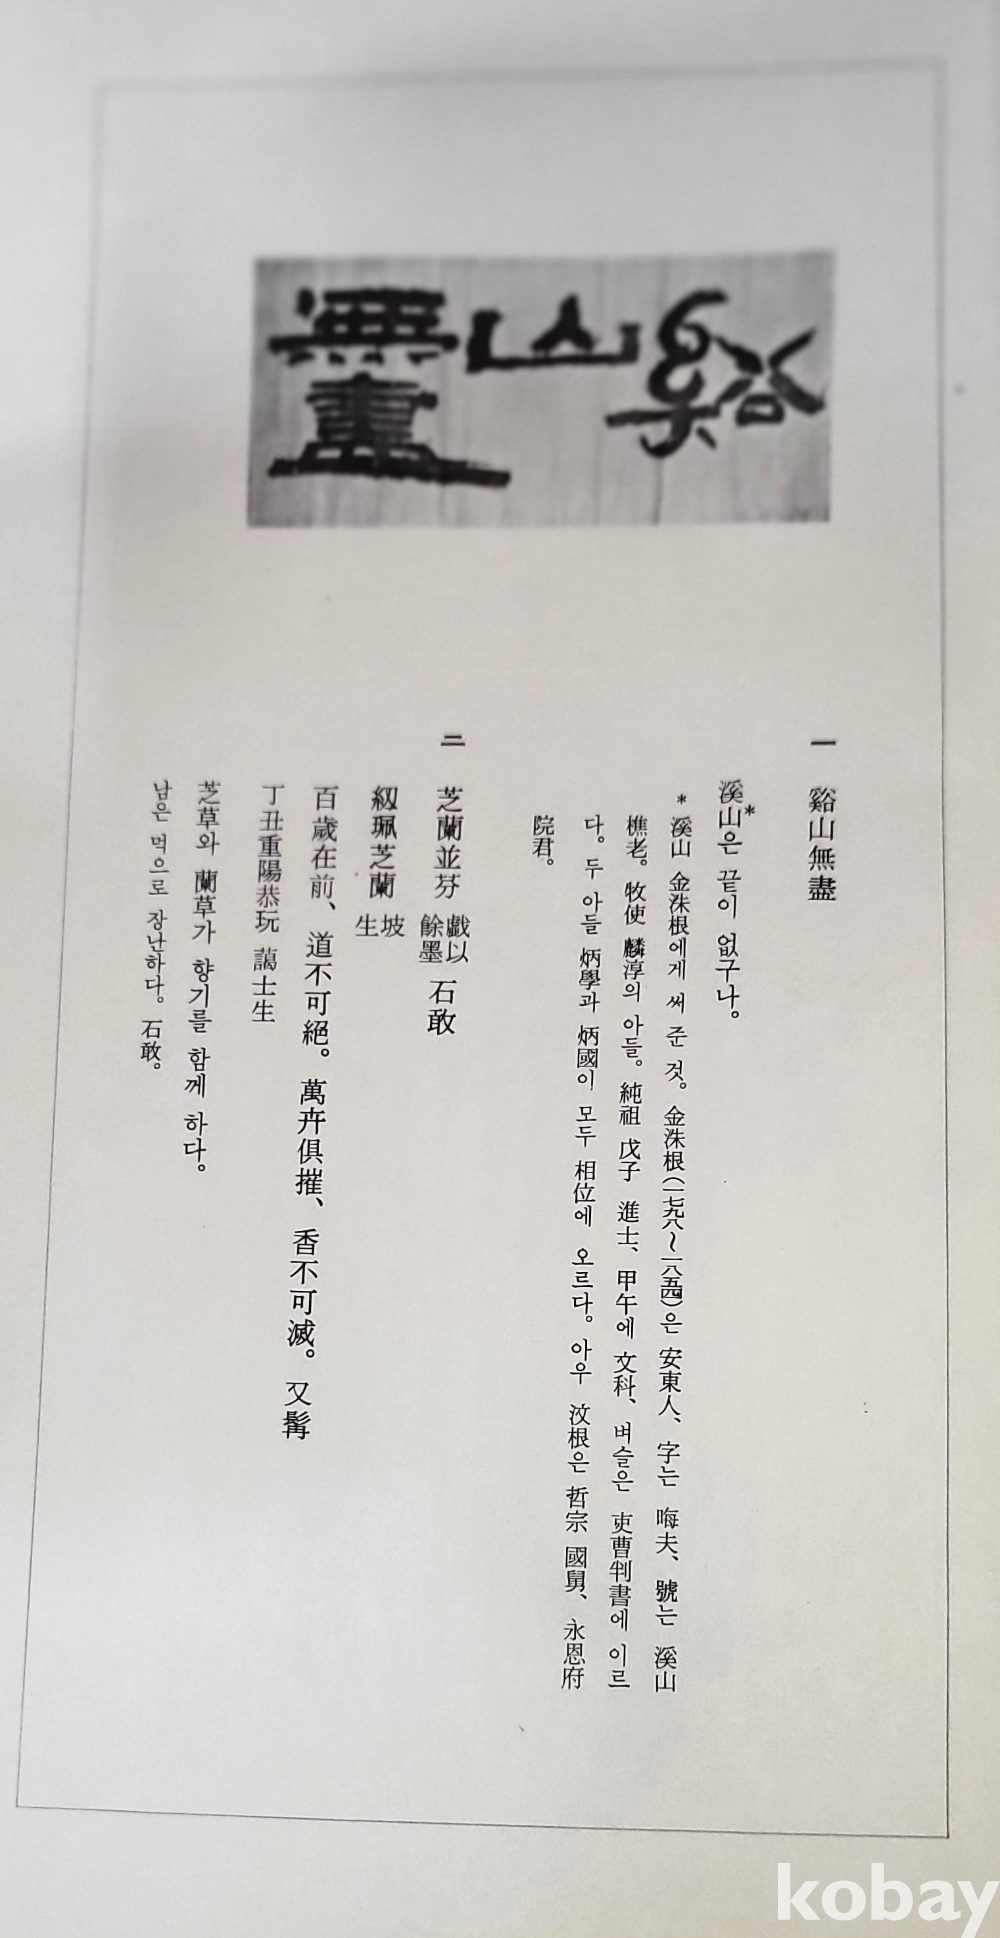 谿山無盡
一 谿山無盡
溪山*은 끝이 없구나。
* 溪山 金洙根에게 써 준 것。金洙根(一七九八~一八五四)은 安東人、字는 晦夫、號는 溪山
樵老。牧使 麟淳의 아들。純祖 戊子 進士、甲午에 文科、벼슬은 吏曹判書에 이르
다。두 아들 炳學과 炳國이 모두 相位에 오르다。아우 汶根은 哲宗 國舅、永恩府
院君。
二 芝蘭並芬 戱以餘墨 石敢
紉珮芝蘭 坡生
百歲在前、道不可絕。萬卉俱摧、香不可滅。又髯
丁丑重陽恭玩 藹士生
芝草와 蘭草가 향기를 함께 하다。
남은 먹으로 장난하다。石敢。
kobay